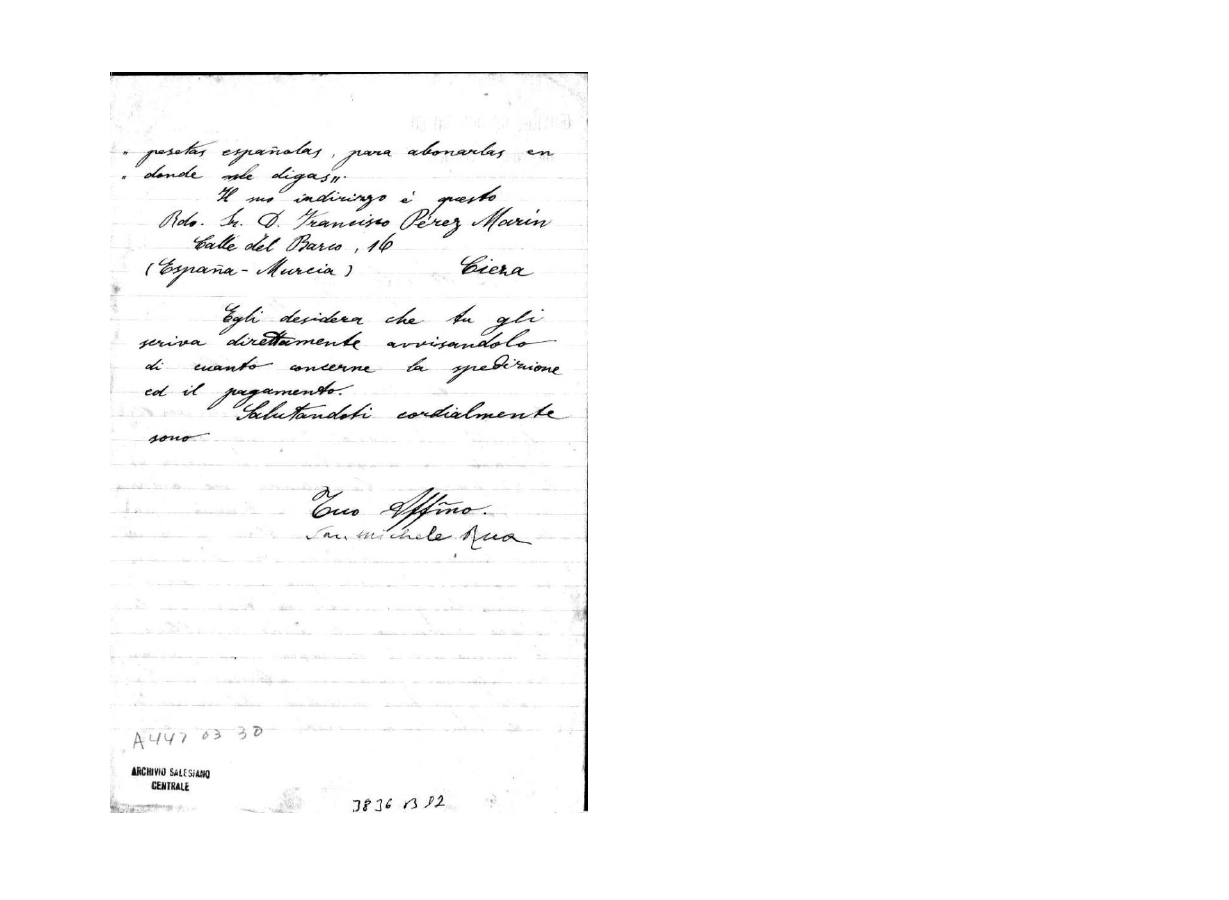 " pesetas españolas, para abonarlas en
" donde me digas".
Il suo indirizzo è questo
Rdo. Sr. D. Francisco Pérez Marin
Calle del Barco, 16
(España - Murcia) Cieza
Egli desidera che tu gli
scriva direttamente avvisandolo
di quanto concerne la spedizione
ed il pagamento.
Salutandoti cordialmente
sono
Tuo Affmo.
Sac. Michele Rua
A447 03 30
ARCHIVIO SALESIANO
CENTRALE
3836 B 12